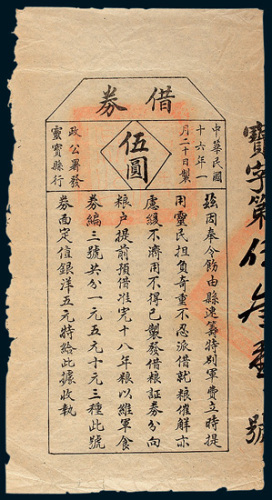 借券
中華民國
十六年一
月二十日製
伍圓
政公署發
靈寶縣行
強因奉令飭由縣速籌特別軍費立時提
用靈民担負奇重不忍派借就粮催解亦
慮緩不濟用不得已製發借粮証券分向
粮户提前預借准完十八年粮以維軍食
券編三號共分一元五元十元三種此號
券面定值銀洋五元特給此據收執
寶字第
號